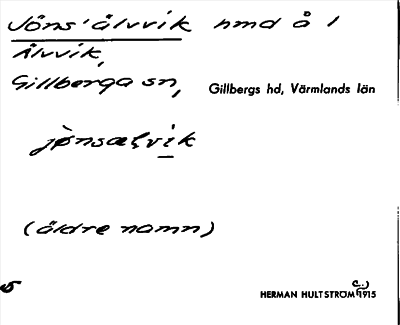 Jöns'älvvik hmd å 1
Älvvik,
Gillberga sn, Gillbergs hd, Värmlands län
jònsæɽvik
(äldre namn)
HERMAN HULTSTRÖM 1915